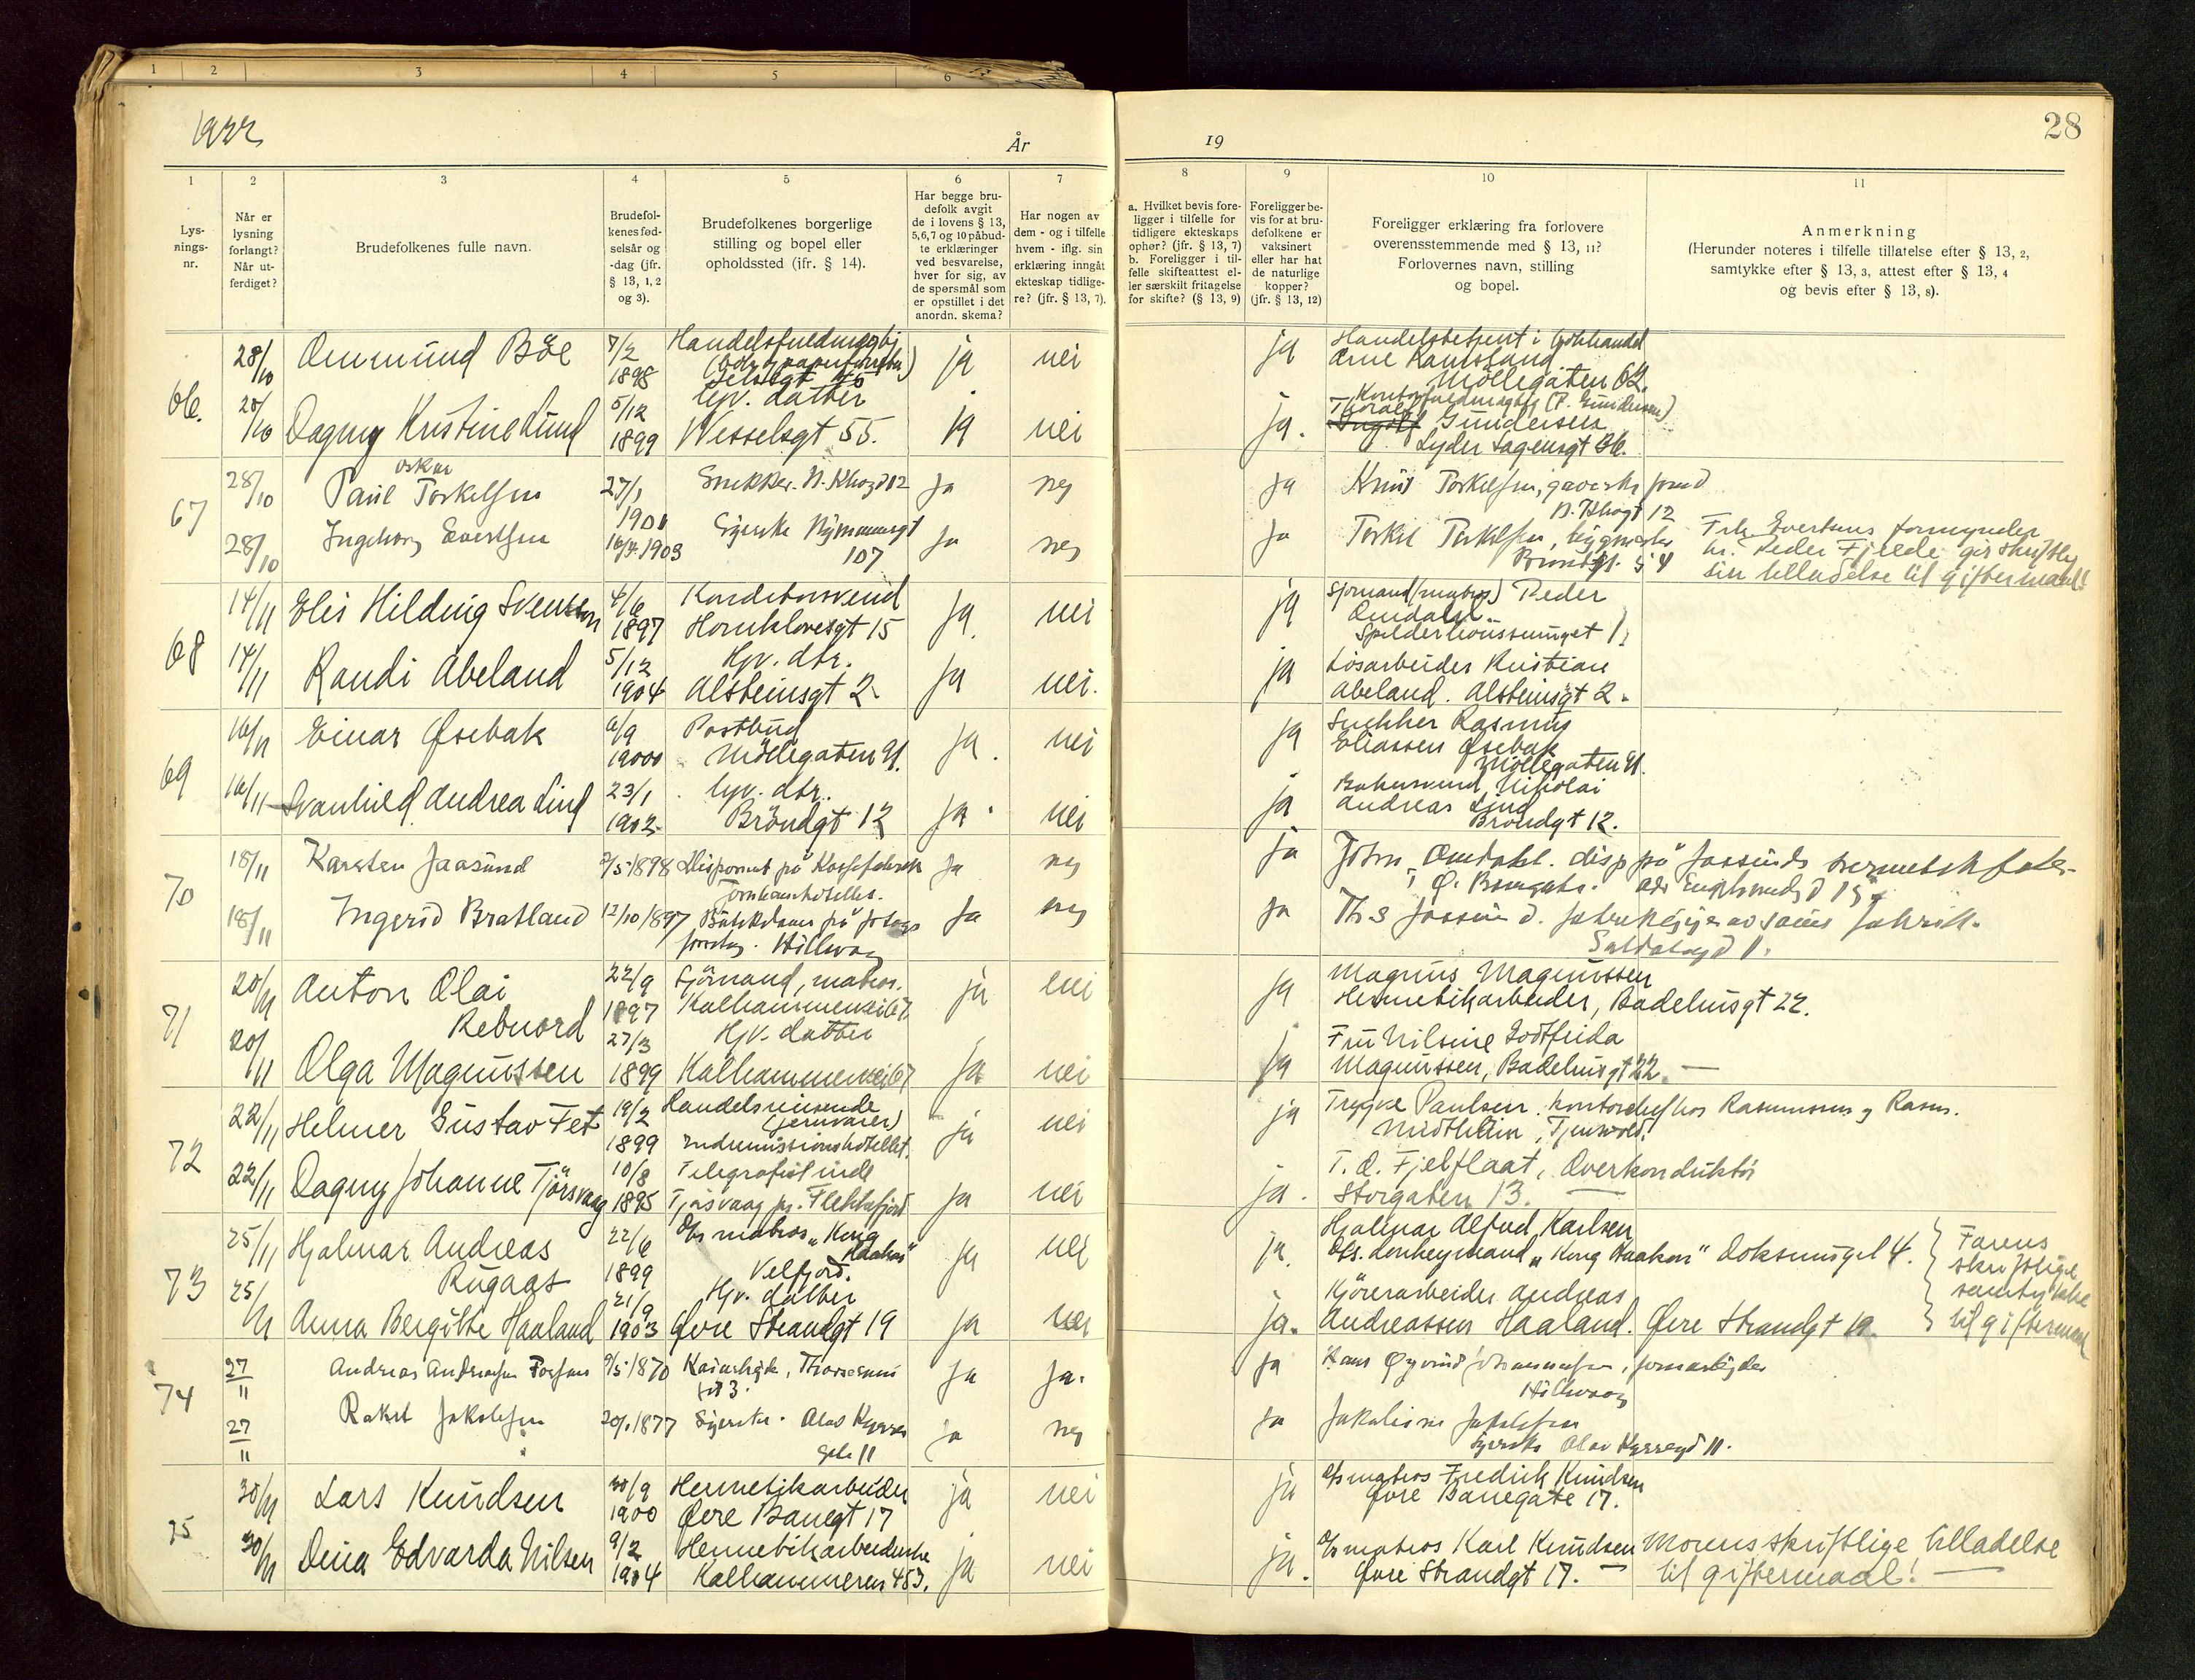 1 2 3 4 5 6
1922
År
19
28
1 2 3 4 5 6 7 8 9 10 11
Lys-
nings-
nr.
Når er
lysning
forlangt?
Når ut-
ferdiget?
Brudefolkenes fulle navn.
Brudefol-
kenes fød-
selsår og
-dag (jfr.
§ 13, 1, 2
og 3).
Brudefolkenes borgerlige
stilling og bopel eller
opholdssted (jfr. § 14).
Har begge bru-
defolk avgit
de i lovens § 13,
5,6,7 og 10 påbud-
te erklæringer
ved besvarelse,
hver for sig, av
de spørsmål som
er opstillet i det
anordn. skema?
Har nogen av
dem - og i tilfelle
hvem - iflg. sin
erklæring inngåt
ekteskap tidlige-
re? (jfr. § 13, 7).
a. Hvilket bevis fore-
ligger i tilfelle for
tidligere ekteskaps
ophør? (jfr. § 13, 7)
b. Foreligger i til-
felle skifteattest el-
ler særskilt fritagelse
for skifte? (§ 13, 9)
Foreligger be-
vis for at bru-
defolkene er
vaksinert
eller har hat
de naturlige
kopper?
(jfr. § 13, 12)
Foreligger erklæring fra forlovere
overensstemmende med § 13, 11?
Forlovernes navn, stilling
og bopel.
Anmerkning
(Herunder noteres i tilfelle tillatelse efter § 13, 2,
samtykke efter § 13, 3, attest efter § 13, 4
og bevis efter § 13, 8).
66.
28/10 Ommund Böe 7/2 1898 ja nei ja
Arne Ramsland
Möllegaten 62.
28/10 Dagny Kristine Lund 5/12 1899 Hjv. datter
Wesselsgt 55. ja nei ja.
Thoralf Gundersen
Lyder Sagensgt 36.
67
28/10 Paul Oskar Torkelsen 27/1 1901 Snekker. ja nej ja
Torkelsen,
28/10 Ingeborg Evertsen 1903 Syerske Nymannsgt
107 ja nej ja Torkel Torkelsen,
Frk. Evertsens formynder
hr. Peder Fjelde gir skriftlig
sin tilladelse til giftermaal!
68
14/11 Elis Hilding Svensson 4/6 1897 Konditorsvend
Hornklovesgt 15 ja. nei ja Sjömand (matros) Peder
Omdahl.
Spilderhaussmuget 1,
14/11 Randi Abeland 5/12 1904 Hjv. dtr.
Alsteinsgt 2. ja nei. ja Lösarbeider Kristian
Abeland. Alsteinsgt 2.
69
16/11 Einar Øsebak 6/9 1900 Postbud
Möllegaten 91. ja. nei ja Snekker Rasmus
Eliassen Øsebak
Möllegaten 91.
16/11 Svanhild Andrea Lind 23/1 1902. Hjv. dtr.
Bröndgt 12 ja. nei ja Nikolai
Andreas Lind
Bröndgt 12.
70
18/11 Karsten Jaasund 1898 ja nej ja John Omdahl. disp på Jaasunds hermetikfabr.
18/11 Ingerid Bratland 12/10 1897
Hillevag ja nej ja Th. S. Jaasund.
71
20/11 Anton Olai
Rebnord 22/9 1897 Sjömand, matros.
Kalhammerveien 67. ja nei ja Magnus Magnussen
Hermetikarbeider, Badehusgt 22.
20/11 Olga Magnussen 27/3 1899 Hjv. datter
Kalhammerveien 67 ja nei ja Fru Nilsine Godtfrida
Magnussen, Badehusgt 22. —
72
22/11 Helmer Gustav Fet 19/2 1899 Handelsreisende
(jernvarer)
Indremissionshotellet. ja nei ja Trygve Paulsen. kontorchef hos Rasmussen & Rasm.
22/11 Dagny Johanne Tjörsvaag 10/8 1895 Telegrafistinde
Tjörsvaag pr. Flekkefjord ja nei ja. T. O. Fjelflaat, Overkonduktör
Storgaten 13. —
73
25/11 Hjalmar Andreas
Rugaas 22/6 1899 D/s matros „Kong
Haakon"
Velfjord. ja nei ja. Hjalmar Alfred Karlsen
D/s. donkeymand „Kong Haakon" Doksmuget 4.
25/11 Anna Bergitte Haaland 21/9 1903 Hjv. datter
Øvre Strandgt 19 ja nei ja. Kjörerarbeider Andreas
Andreassen Haaland. Øvre Strandgt 19.
Farens
skriftlige
samtykke
til giftermaal
74
27/11 Andreas Andreassen 1870 ja ja. ja Hans Øyvind Johannessen,
Hillevaag
27/11 Rakel Jakobsen 1877 Syerske. Olav Kyrres
gate 11 ja nej ja Jakobsen
Syerske Olav Kyrresgd 11.
75
30/11 Lars Knudsen 30/9 1900 Hermetikarbeider
Øvre Banegt 17 ja nei ja D/s matros Fredrik Knudsen
Øvre Banegate 17.
30/11 Dina Edvarda Nilsen 9/2 1904 Hermetikarbeiderske
Kalhammeren 453. ja nei ja. D/s matros Karl Knudsen
Øvre Strandgt 17. —
Morens skriftlige tilladelse
til giftermaal! —